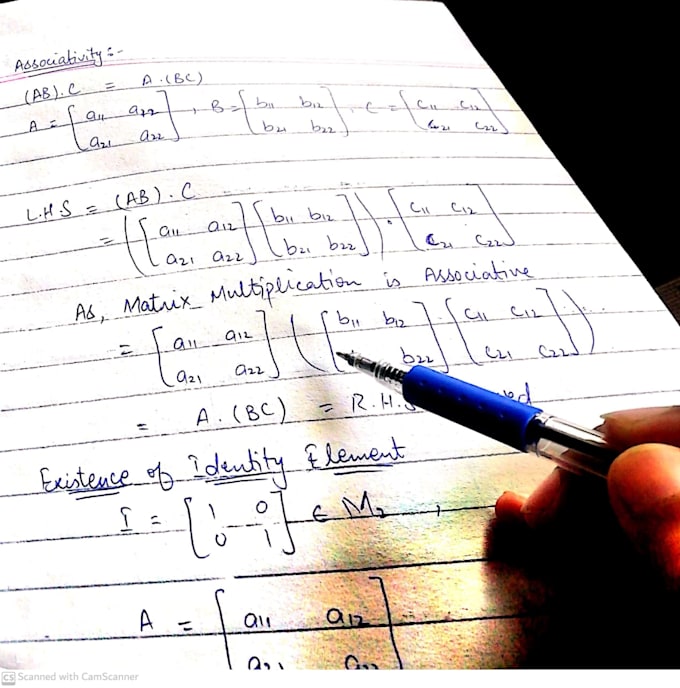 Associativity :-
(AB).C = A.(BC)
A = [a11 a22 a21 a22], B = [b11 b12 b21 b22], C = [c11 c12 c21 c22]
L.H.S = (AB).C
= ([a11 a12 a21 a22] [b11 b12 b21 b22]) . [c11 c12 c21 c22]
As, Matrix Multiplication is Associative
= [a11 a12 a21 a22] ([b11 b12 b22] . [c11 c12 c21 c22])
= A.(BC) = R.H.S
Existence of Identity Element
I = [1 0 0 1] ∈ M2,
A = [a11 a12
a21 a22
CS Scanned with CamScanner